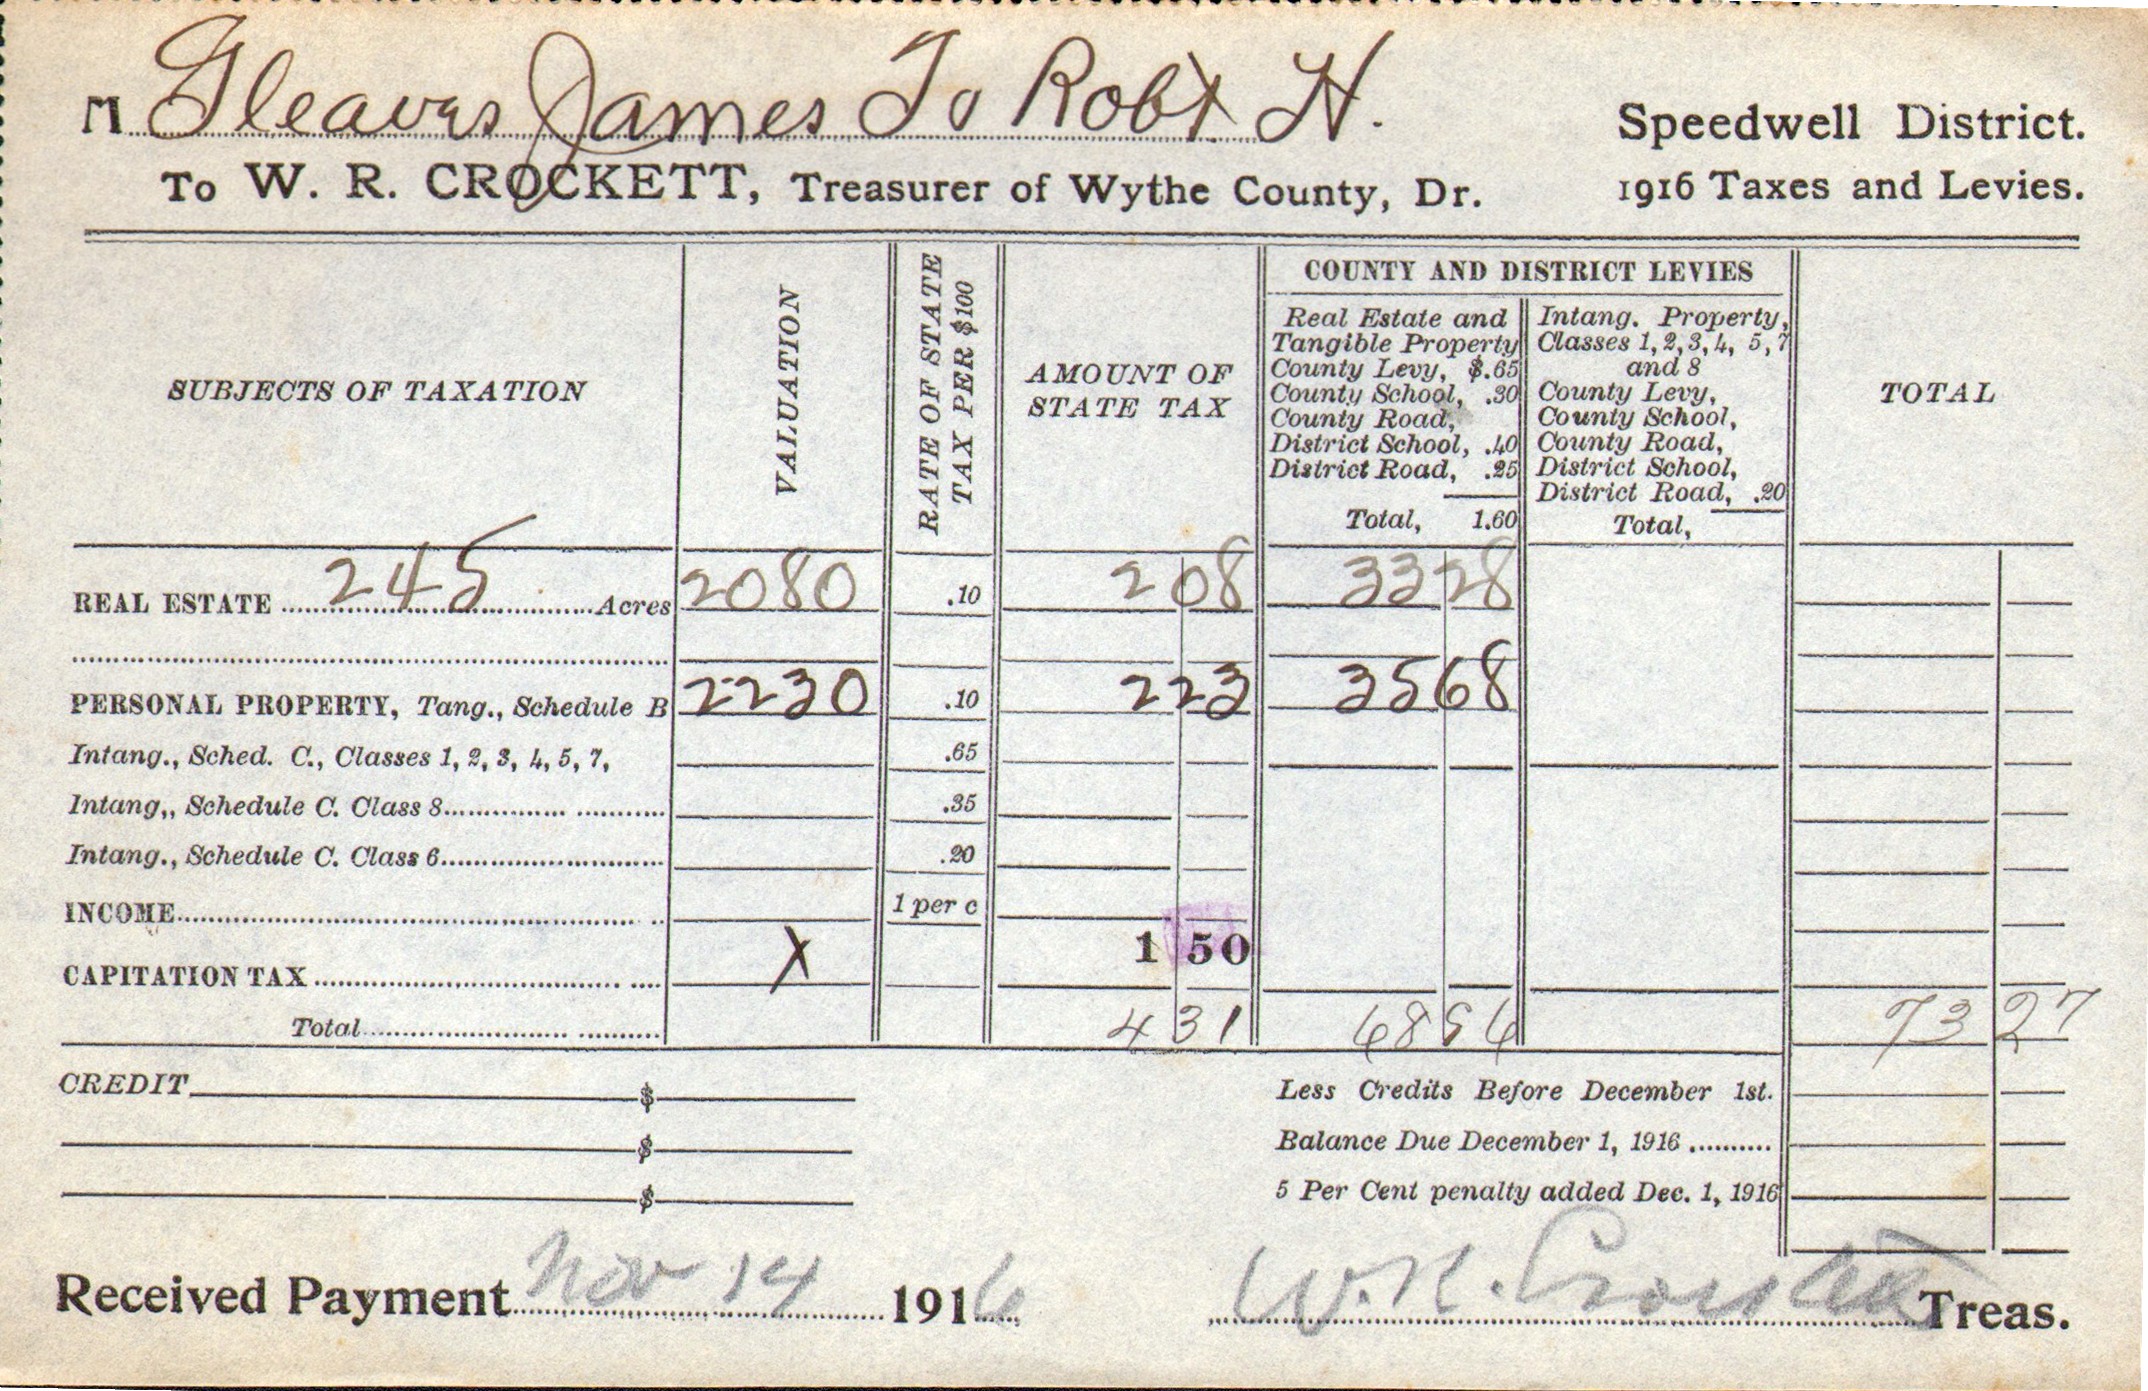 M Gleaves James To Robt H.
Speedwell District.
To W. R. CROCKETT, Treasurer of Wythe County, Dr.
1916 Taxes and Levies.
SUBJECTS OF TAXATION
VALUATION
RATE OF STATE
TAX PER $100
AMOUNT OF
STATE TAX
COUNTY AND DISTRICT LEVIES
Real Estate and
Tangible Property
County Levy, $.65
County School, .30
County Road,
District School, .40
District Road, .25
Total, 1.60
Intang. Property,
Classes 1, 2, 3, 4, 5, 7
and 8
County Levy,
County School,
County Road,
District School,
District Road, .20
Total,
TOTAL
REAL ESTATE 245 Acres 2080 .10 2 08 33 28
PERSONAL PROPERTY, Tang., Schedule B 2230 .10 2 23 35 68
Intang., Sched. C., Classes 1, 2, 3, 4, 5, 7, .65
Intang,, Schedule C. Class 8 .35
Intang., Schedule C. Class 6 .20
INCOME 1 per c
CAPITATION TAX X 1 50
Total 4 31 68 96 73 27
CREDIT $
$
$
Less Credits Before December 1st.
Balance Due December 1, 1916
5 Per Cent penalty added Dec. 1, 1916
Received Payment Nov 14 1916
W. R. Crockett Treas.